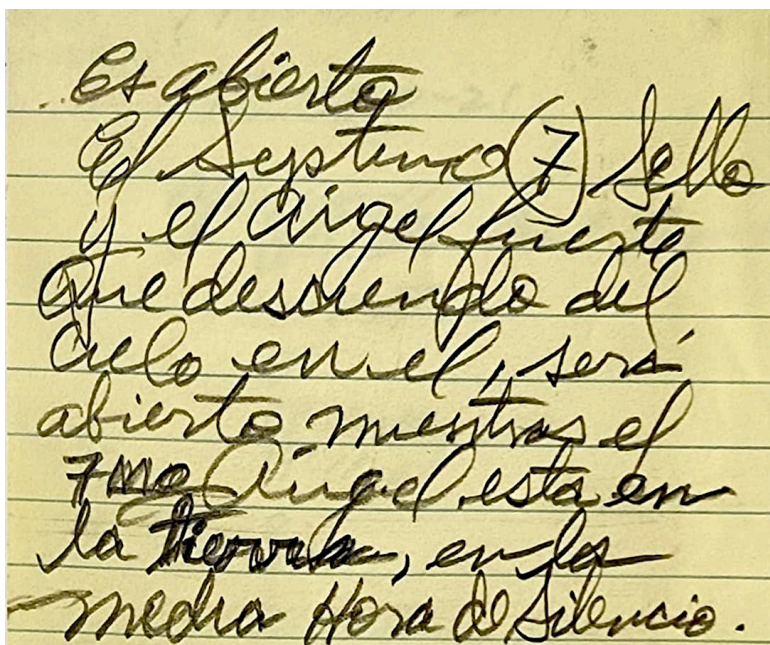 Es abierto
El Septimo (7) Sello
y el angel fuerte
que desciende del
cielo en el, será
abierto mientras el
7mo Ángel esta en
la tierra, en la
media Hora de Silencio.